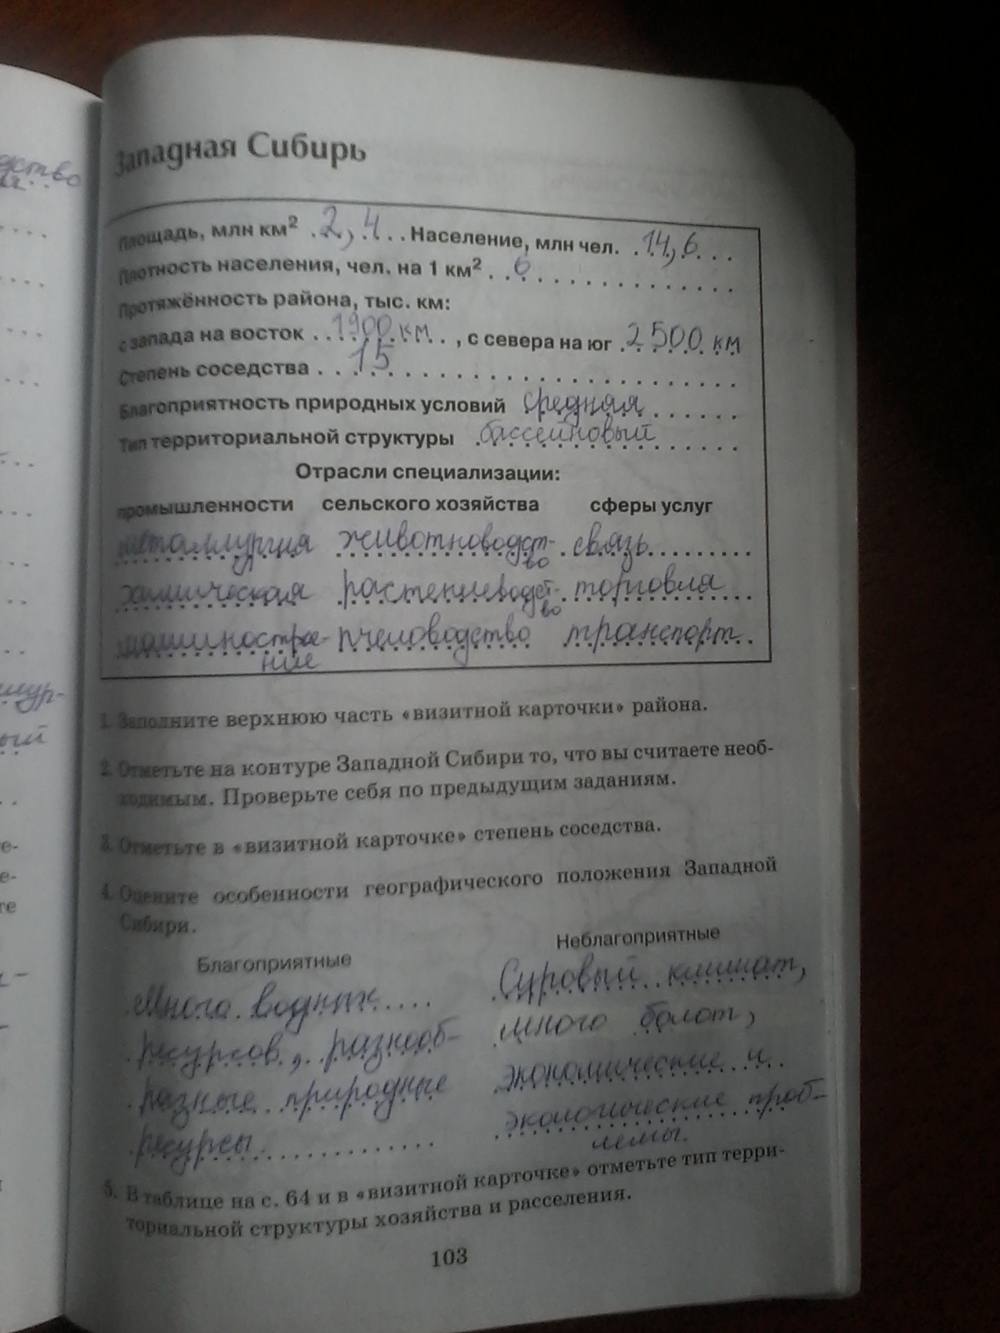 Западная Сибирь
Площадь, млн км² 2,4 Население, млн чел. 14,6
Плотность населения, чел. на 1 км² 6
Протяжённость района, тыс. км:
с запада на восток 1900 км, с севера на юг 2500 км
Степень соседства 15
Благоприятность природных условий средняя
Тип территориальной структуры бассейновый
Отрасли специализации:
промышленности сельского хозяйства сферы услуг
металлургия животноводст- связь
во
химическая растениеводст- торговля
во
машиностро- пчеловодство транспорт
ние
1. Заполните верхнюю часть «визитной карточки» района.
2. Отметьте на контуре Западной Сибири то, что вы считаете необ-
ходимым. Проверьте себя по предыдущим заданиям.
3. Отметьте в «визитной карточке» степень соседства.
4. Оцените особенности географического положения Западной
Сибири.
Благоприятные
Много водных
ресурсов, разнооб-
разные природные
ресурсы
Неблагоприятные
Суровый климат,
много болот,
экономические и
экологические проб-
лемы.
5. В таблице на с. 64 и в «визитной карточке» отметьте тип терри-
ториальной структуры хозяйства и расселения.
103